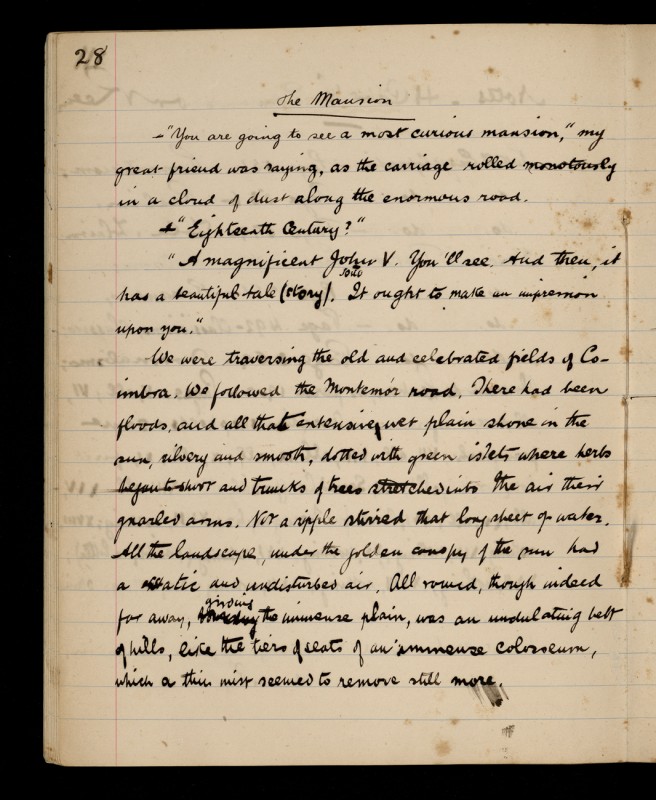 28
The Mansion
"You are going to see a most curious mansion," my
great friend was saying, as the carriage rolled monotously
in a cloud of dust along the enormous road.
"Eighteenth Century?"
"A magnificent John V. You'll see. And then, it
has a beautiful tale (story). It ought to make an impression
upon you."
We were traversing the old and celebrated fields of Co-
imbra. We followed the Montemór road. There had been
floods, and all that extensive wet plain shone in the
sun, silvery and smooth, dotted with green islets where herbs
begun to shoot and trunks of trees stretched into the air their
gnarled arms. Not a ripple stirred that long sheet of water.
All the landscape, under the golden canopy of the sun had
a static and undisturbed air. All round, though indeed
girding
far away, the immense plain, was an undulating belt
of hills, like the tiers of seats of an immense colosseum,
which a thin mist seemed to remove still more.